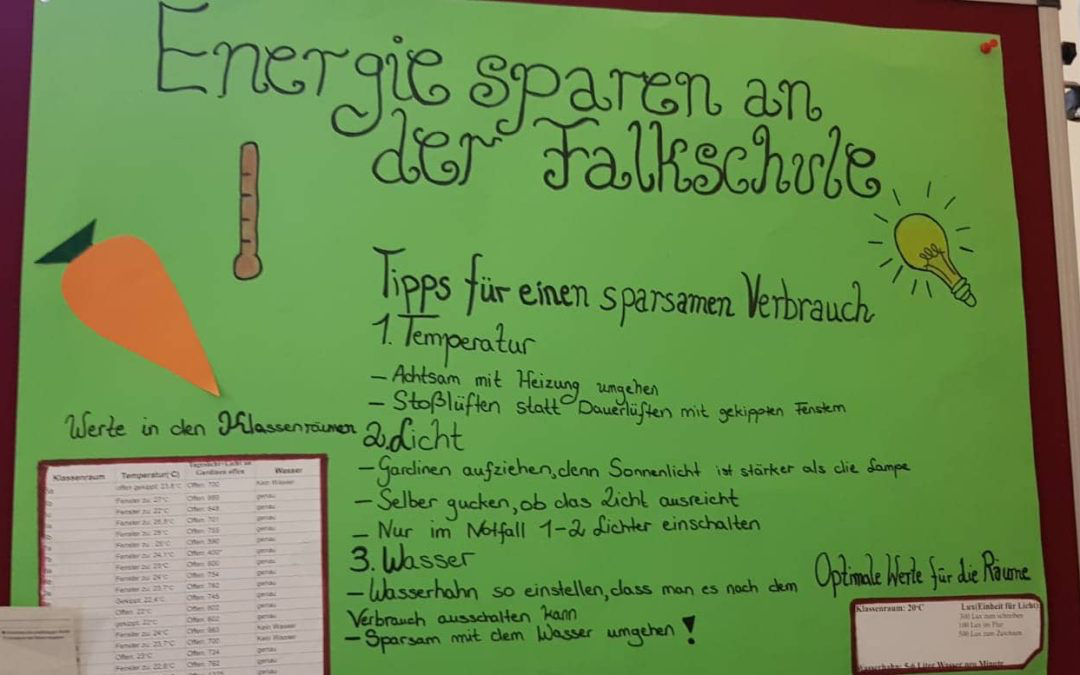 Energie sparen an
der Falkschule
Tipps für einen sparsamen Verbrauch
1. Temperatur
– Achtsam mit Heizung umgehen
– Stoßlüften statt Dauerlüften mit gekippten Fenstern
2. Licht
– Gardinen aufziehen, denn Sonnenlicht ist stärker als die Lampe
– Selber gucken, ob das Licht ausreicht
– Nur im Notfall 1-2 Lichter einschalten
3. Wasser
– Wasserhahn so einstellen, dass man es nach dem
Verbrauch ausschalten kann
– Sparsam mit dem Wasser umgehen!
Werte in den Klassenräumen
Klassenraum Temperatur(°C) Gardinen offen Wasser
offen gekippt: 21,8°C Offen: 700 Kein Wasser
Fenster zu: 27°C genau
Fenster zu: 22°C Offen: 648 genau
Offen: 701 genau
Offen: 755 genau
Offen: 590 genau
Fenster zu: 24,1°C genau
Fenster zu: 23°C Offen: 600 genau
Fenster zu: 24°C Offen: 754 genau
Fenster zu: 23,7°C Offen: 762 genau
Gekippt: 22,4°C Offen: 745 genau
Offen: 22°C Offen: 602 genau
gekippt: 22°C Offen: 602 genau
Fenster zu: 24°C Kein Wasser
Fenster zu: 23,7°C Offen: 700 Kein Wasser
Offen: 23°C Offen: 724 genau
Fenster zu: 22,8°C Offen: 762 genau
Optimale Werte für die Räume
Klassenraum: 20°C Lux(Einheit für Licht)
300 Lux zum schreiben
100 Lux im Flur
500 Lux zum Zeichnen
Wasserhahn: 5-6 Liter Wasser pro Minute